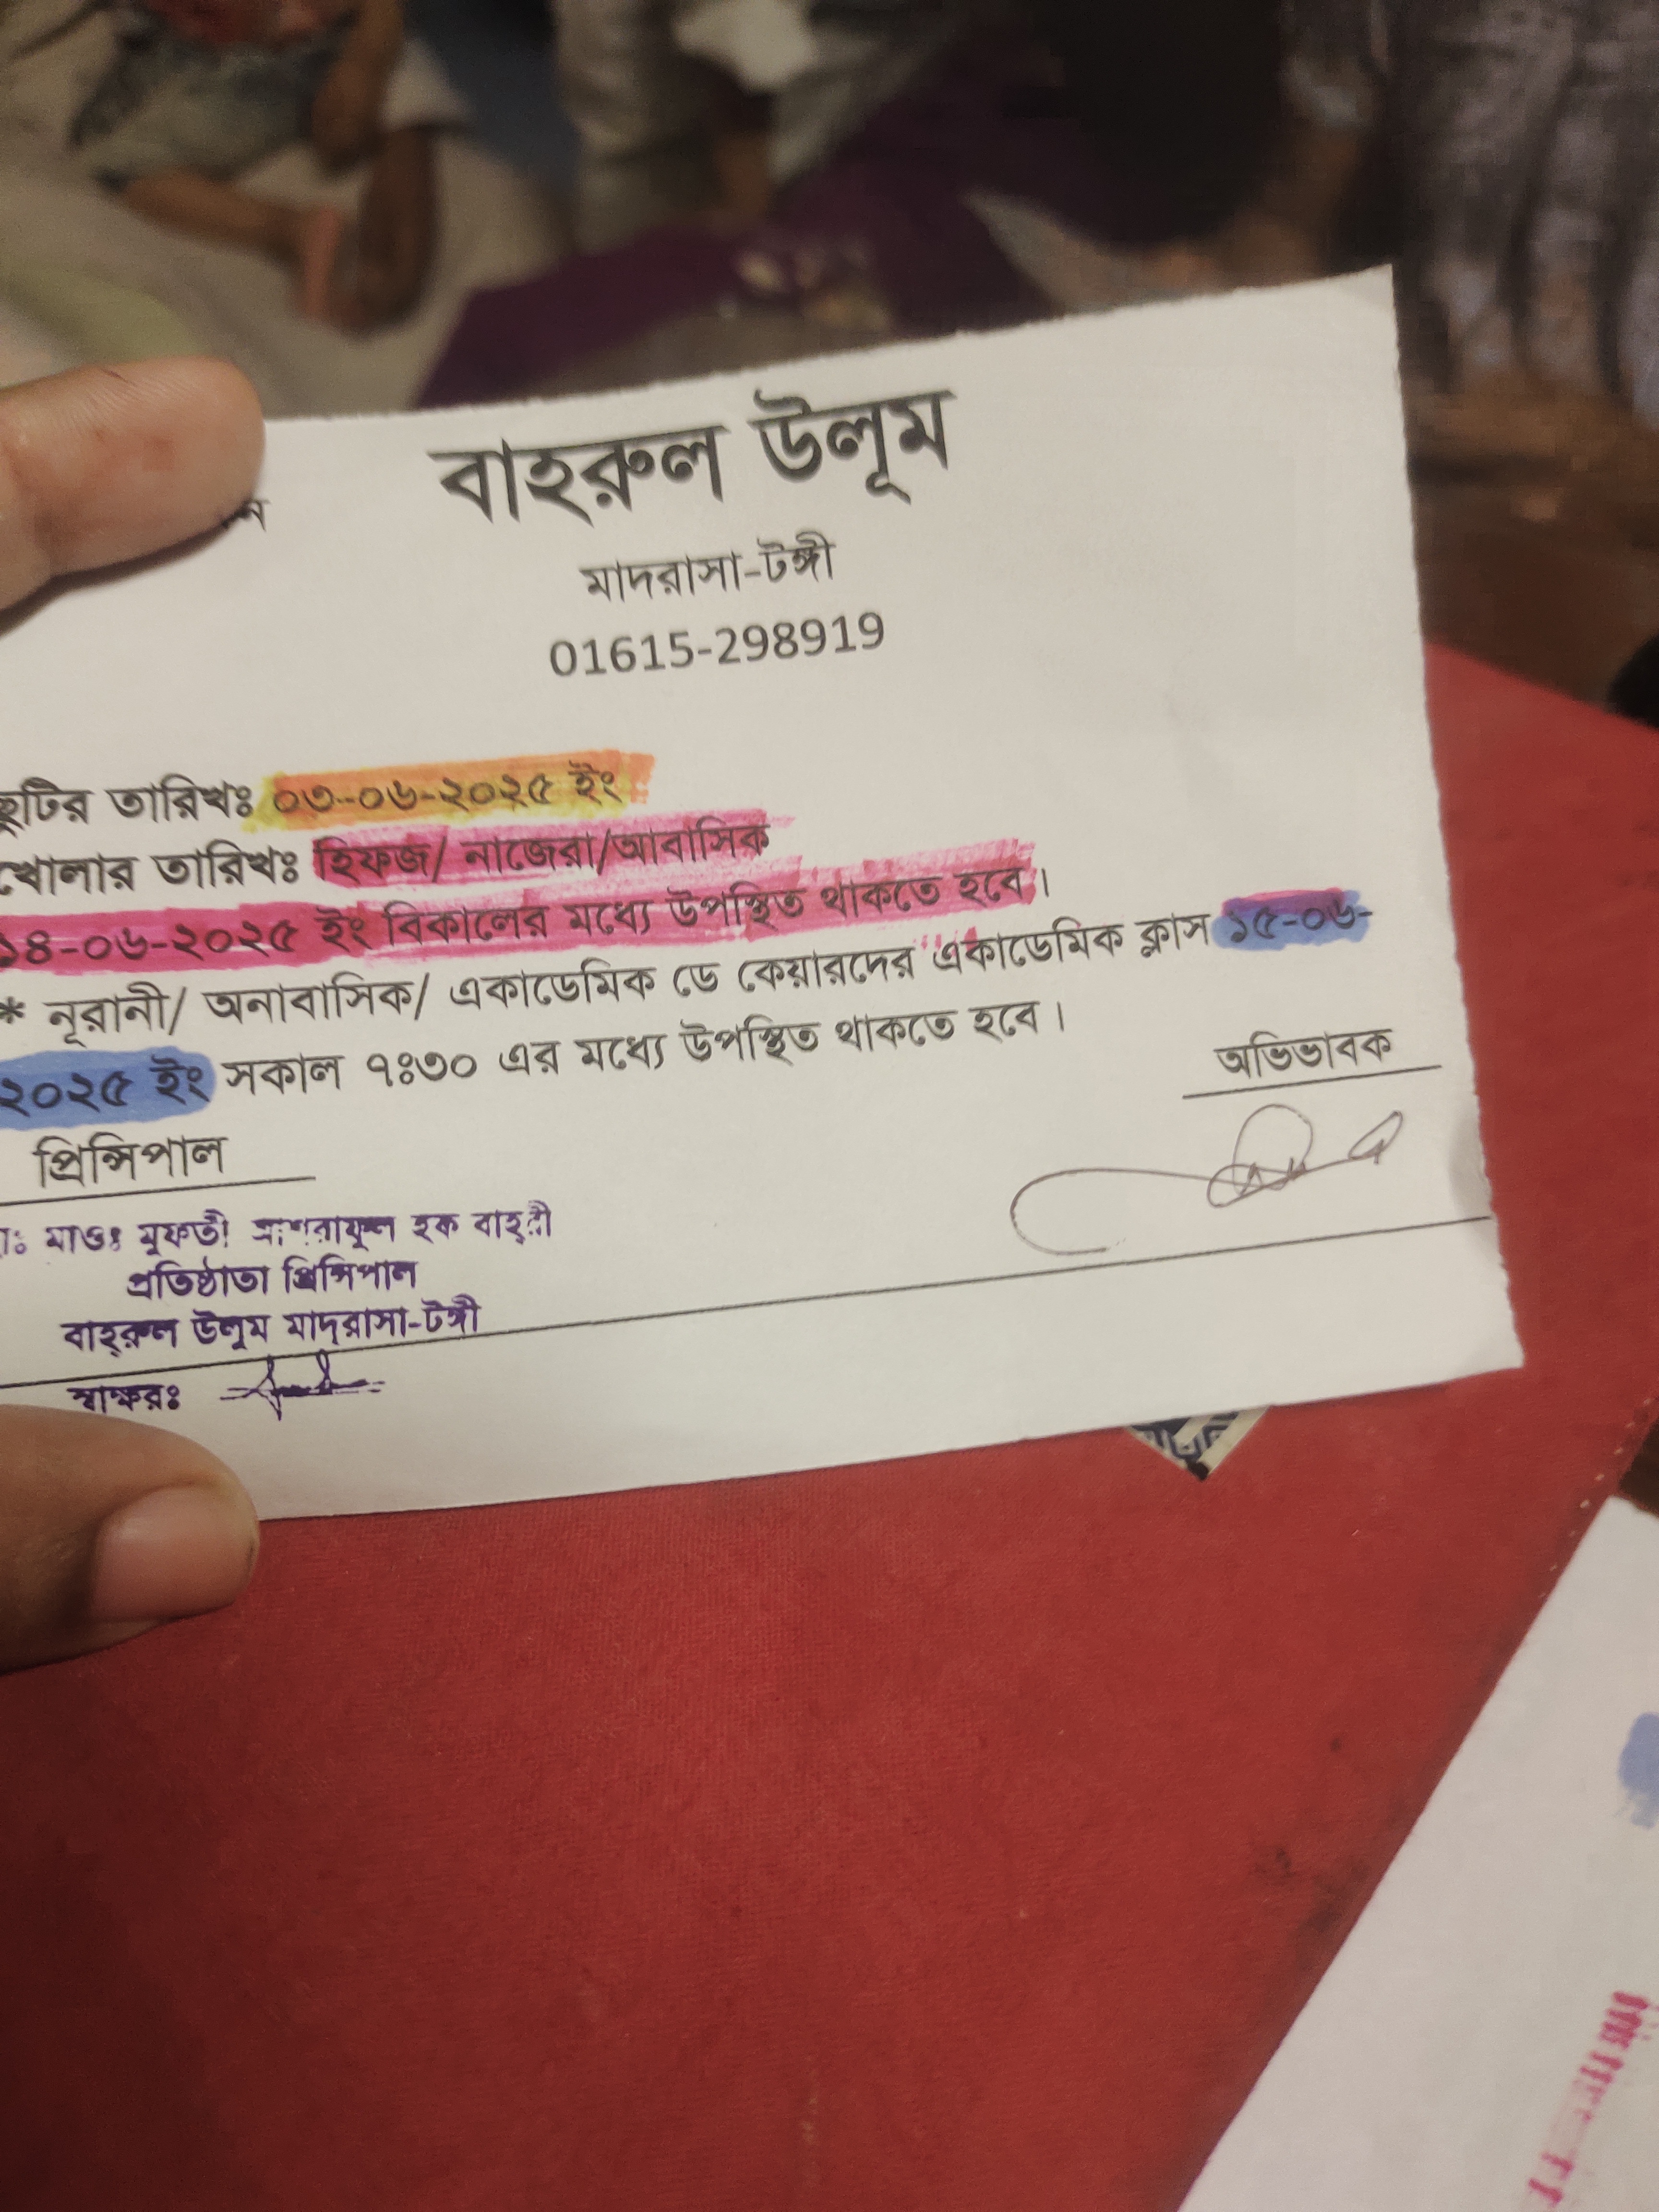 বাহরুল উলূম
মাদরাসা-টঙ্গী
01615-298919
ছুটির তারিখঃ ০৩-০৬-২০২৫ ইং
খোলার তারিখঃ হিফজ/ নাজেরা/আবাসিক
১৪-০৬-২০২৫ ইং বিকালের মধ্যে উপস্থিত থাকতে হবে।
* নূরানী/ অনাবাসিক/ একাডেমিক ডে কেয়ারদের একাডেমিক ক্লাস ১৫-০৬-
২০২৫ ইং সকাল ৭ঃ৩০ এর মধ্যে উপস্থিত থাকতে হবে।
অভিভাবক
প্রিন্সিপাল
মাওঃ মুফতী আশরাফুল হক বাহ্‌রী
প্রতিষ্ঠাতা প্রিন্সিপাল
বাহ্‌রুল উলুম মাদ্‌রাসা-টঙ্গী
স্বাক্ষরঃ